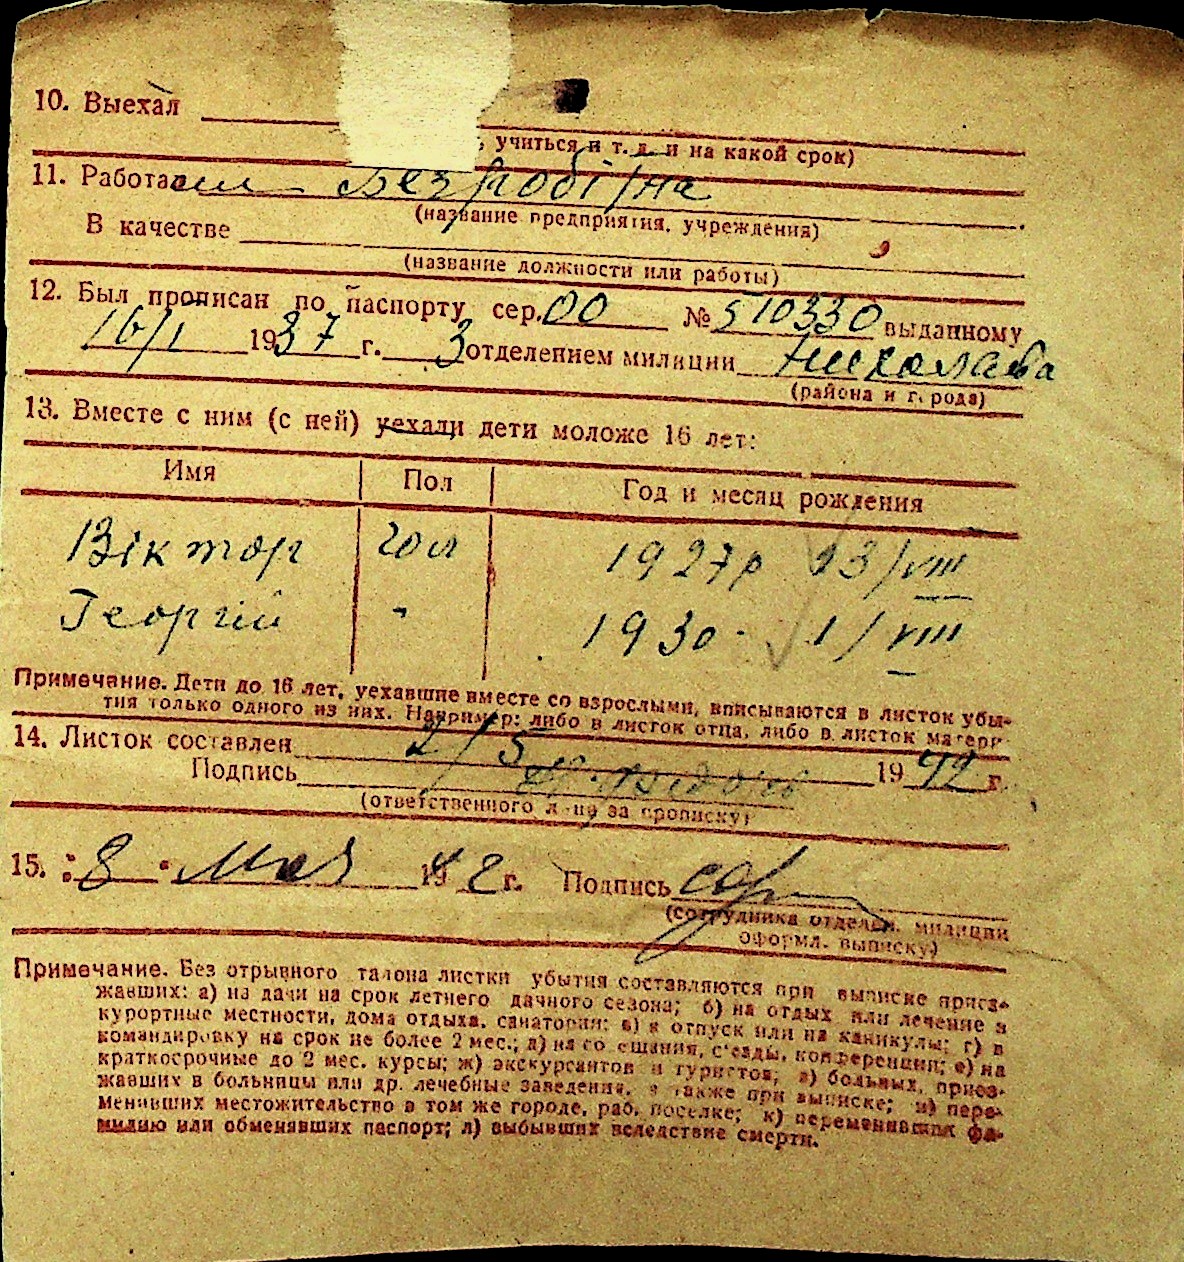 10. Выехал
, учиться и т. д. и на какой срок)
11. Работал Безробітна
(название предприятия, учреждения)
В качестве
(название должности или работы)
12. Был прописан по паспорту сер. 00 № 510330 выданному
16/I 1937 г. 3 отделением милиции Николаева
(района и города)
13. Вместе с ним (с ней) уехали дети моложе 16 лет:
Имя Пол Год и месяц рождения
Віктор чол 1927р 23/VIII
Георгій " 1930 1/VIII
Примечание. Дети до 16 лет, уехавшие вместе со взрослыми, вписываются в листок убы-
тия только одного из них. Например: либо в листок отца, либо в листок матери
14. Листок составлен 2/5 1942 г.
Подпись
(ответственного лица за прописку)
15. "8" Мая 1942 г. Подпись
(сотрудника отделен. милиции
оформл. выписку)
Примечание. Без отрывного талона листки убытия составляются при выписке приез-
жавших: а) на дачи на срок летнего дачного сезона; б) на отдых или лечение в
курортные местности, дома отдыха, санатории; в) в отпуск или на каникулы; г) в
командировку на срок не более 2 мес.; д) на совещания, съезды, конференции; е) на
краткосрочные до 2 мес. курсы; ж) экскурсантов и туристов; з) больных, приез-
жавших в больницы или др. лечебные заведения, а также при выписке; и) пере-
менивших местожительство в том же городе, раб. поселке; к) переменивших фа-
милию или обменявших паспорт; л) выбывших вследствие смерти.